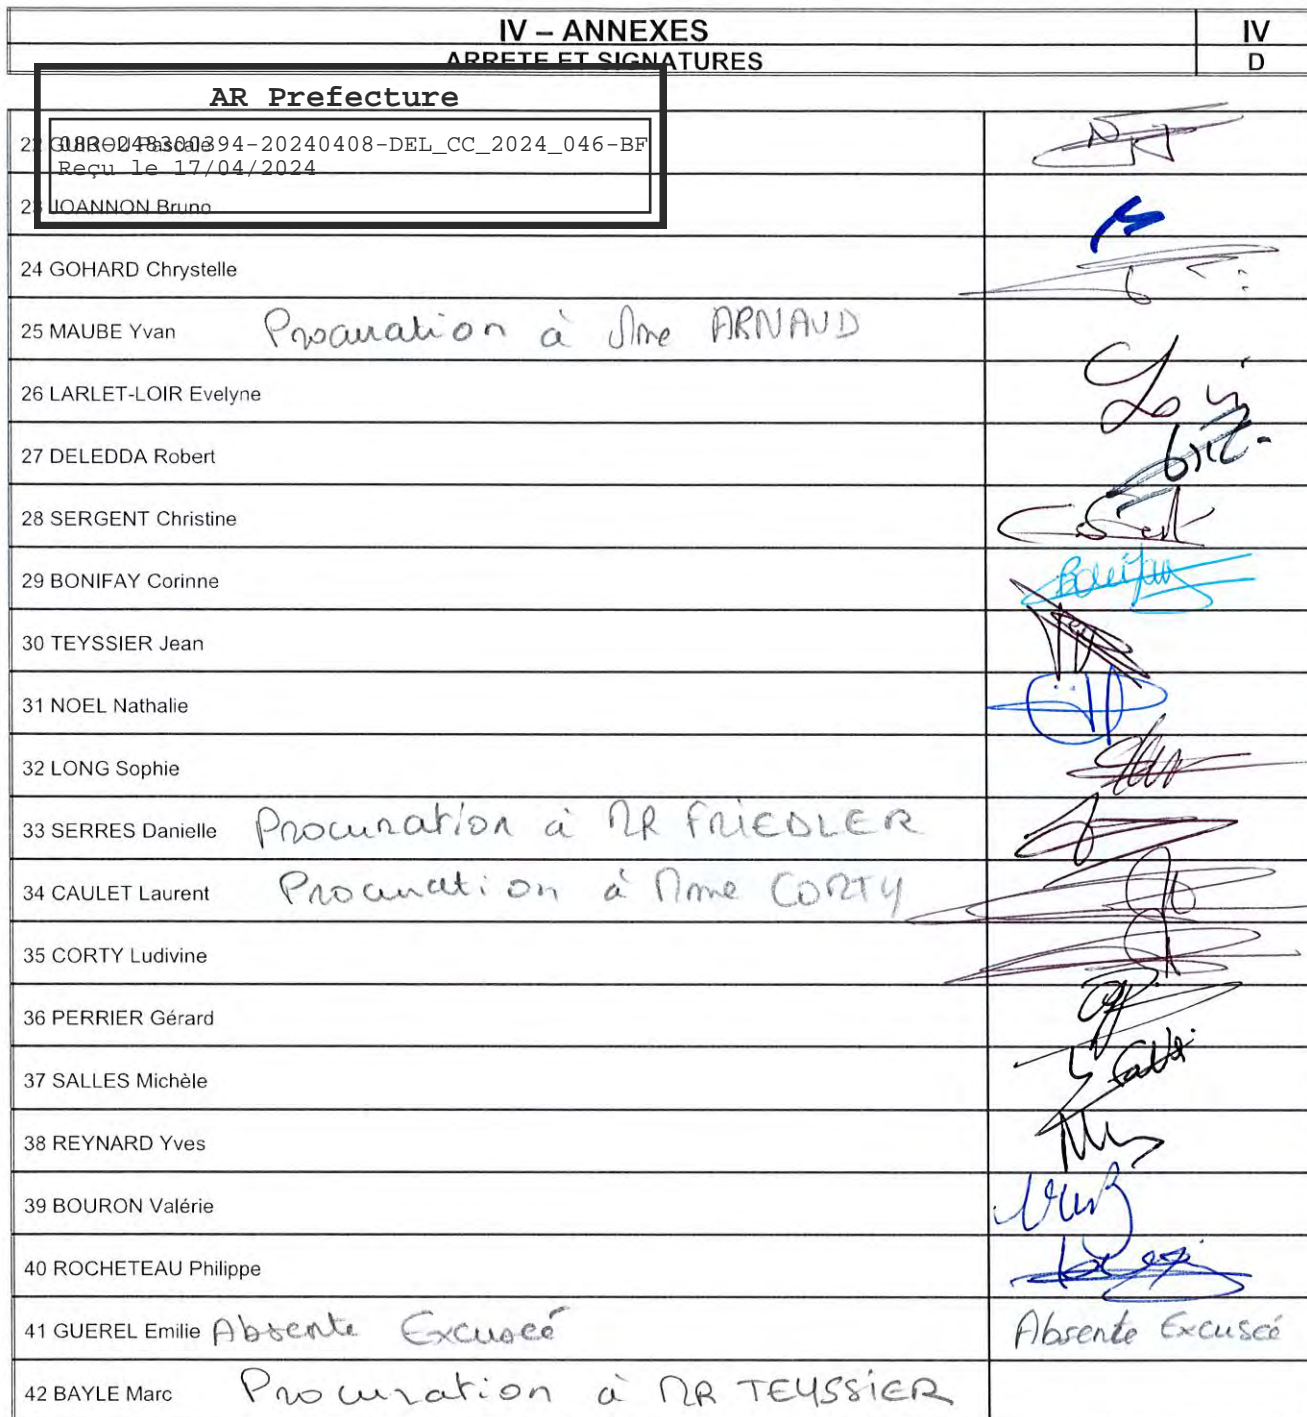 IV – ANNEXES IV
ARRETE ET SIGNATURES D
AR Prefecture
083-248300394-20240408-DEL_CC_2024_046-BF
Reçu le 17/04/2024
22 GUIROU Pascale
23 JOANNON Bruno
24 GOHARD Chrystelle
25 MAUBE Yvan Procuration à Mme ARNAUD
26 LARLET-LOIR Evelyne
27 DELEDDA Robert
28 SERGENT Christine
29 BONIFAY Corinne Bonifay
30 TEYSSIER Jean
31 NOEL Nathalie
32 LONG Sophie
33 SERRES Danielle Procuration à MR FRIEDLER
34 CAULET Laurent Procuration à Mme CORTY
35 CORTY Ludivine
36 PERRIER Gérard
37 SALLES Michèle
38 REYNARD Yves
39 BOURON Valérie
40 ROCHETEAU Philippe
41 GUEREL Emilie Absente Excuseé Absente Excuseé
42 BAYLE Marc Procuration à MR TEYSSIER